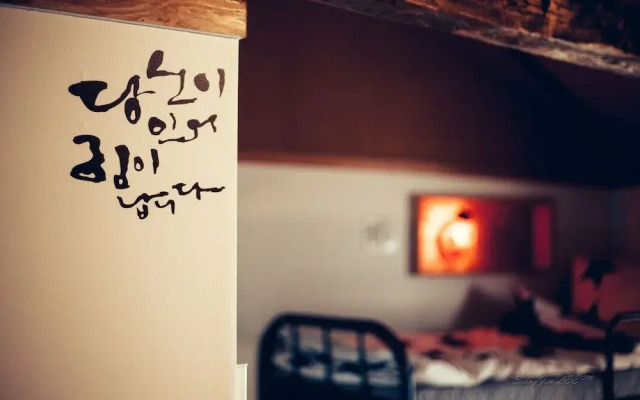 당신이
있어
큰 힘이
납니다